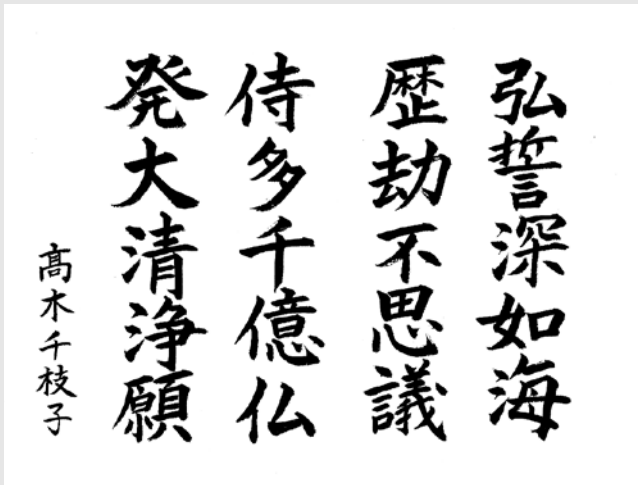 弘誓深如海
歴劫不思議
侍多千億仏
発大清浄願
髙木千枝子